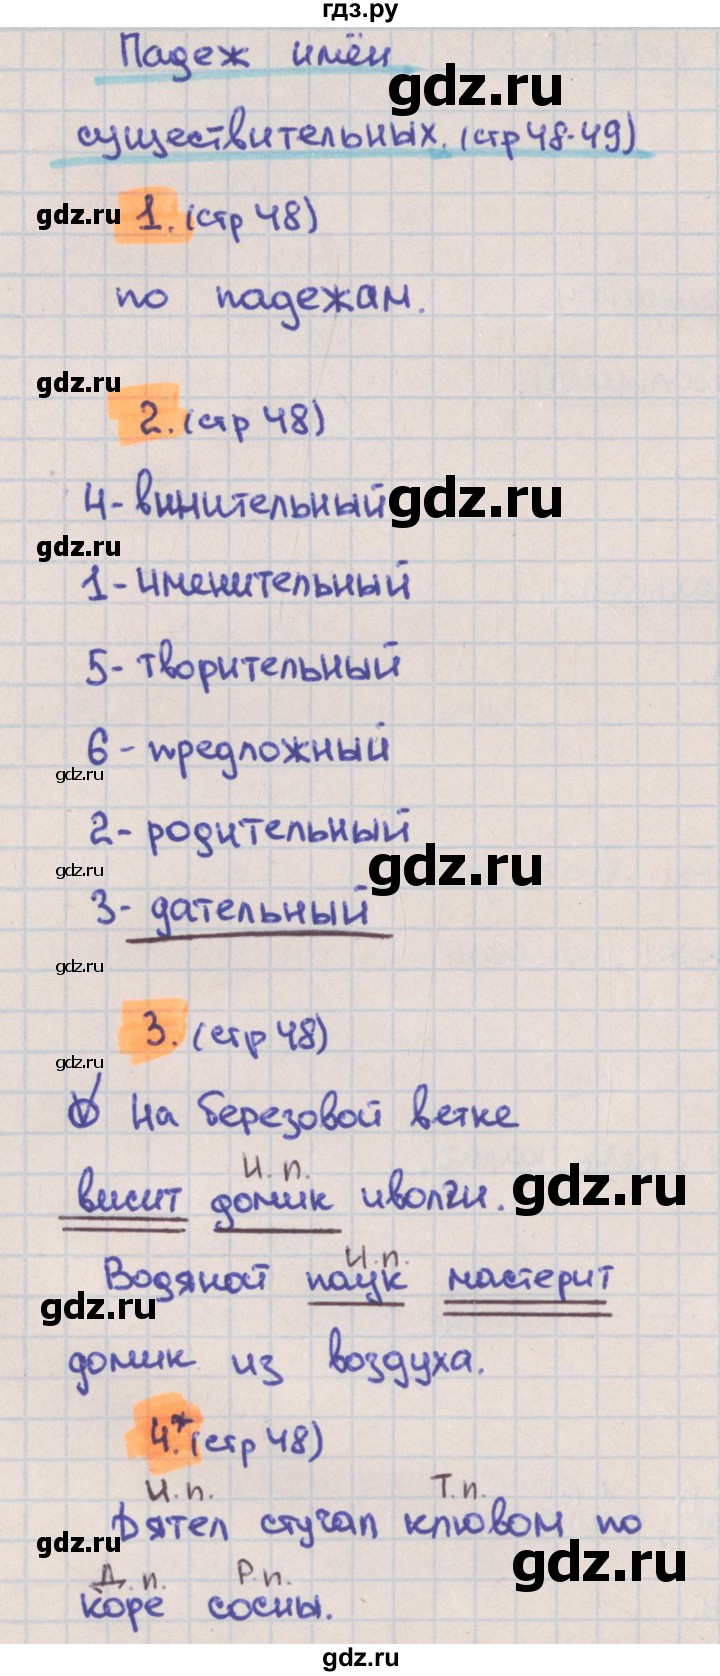 гдз.ру
Падеж имён
gdz.ru
существительных. (стр 48-49)
gdz.ru 1. (стр 48)
по падежам.
gdz.ru
2. (стр 48)
4- винительный gdz.ru
gdz.ru
1- именительный
5- творительный
6 - предложный
gdz.ru
2- родительный
gdz.ru gdz.ru
3- дательный
gdz.ru
3. (стр 48)
gdz.ru
На березовой ветке
И. п.
висит домик иволги. gdz.ru
И. п.
Водяной паук мастерит
gdz.ru
домик из воздуха.
4.* (стр 48)
И. п. Т. п.
Дятел стучал клювом по
gdz.ru gdz.ru
Д. п. Р. п.
коре сосны.
gdz.ru